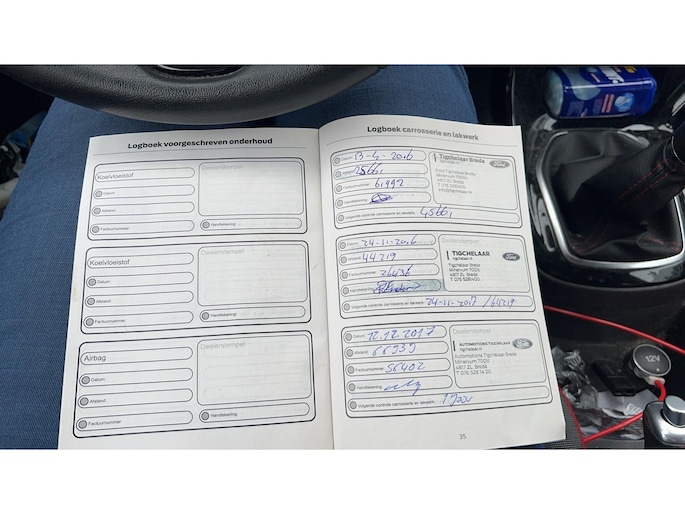 Logboek voorgeschreven onderhoud
Koelvloeistof
Datum:
Afstand:
Factuurnummer:
Dealerstempel
Handtekening:
Koelvloeistof
Datum:
Afstand:
Factuurnummer:
Dealerstempel
Handtekening:
Airbag
Datum:
Afstand:
Factuurnummer:
Dealerstempel
Handtekening:
Logboek carrosserie en lakwerk
Datum: 13-4-2016
Afstand: 25661
Factuurnummer: 61992
Handtekening:
Volgende controle carrosserie en lakwerk: 45661
Tigchelaar Breda
Ford Tigchelaar Breda
Minervum 7001c
4817 ZL Breda
Ford
Datum: 24-11-2016
Afstand: 44219
Factuurnummer: 26436
Handtekening:
Volgende controle carrosserie en lakwerk: 24-11-2017 / 64219
TIGCHELAAR
tigchelaar.nl
Tigchelaar Breda
Minervum 7001c
4817 ZL Breda
T 076 5281400
Ford
Datum: 12.12.2017
Afstand: 66939
Factuurnummer: 56402
Handtekening:
Volgende controle carrosserie en lakwerk: 1 Jaar
Dealerstempel
AUTOMOTIONS TIGCHELAAR
tigchelaar.nl
Automotions Tigchelaar Breda
Minervum 7001c
4817 ZL Breda
T 076 528 14 00
Ford
35
12V